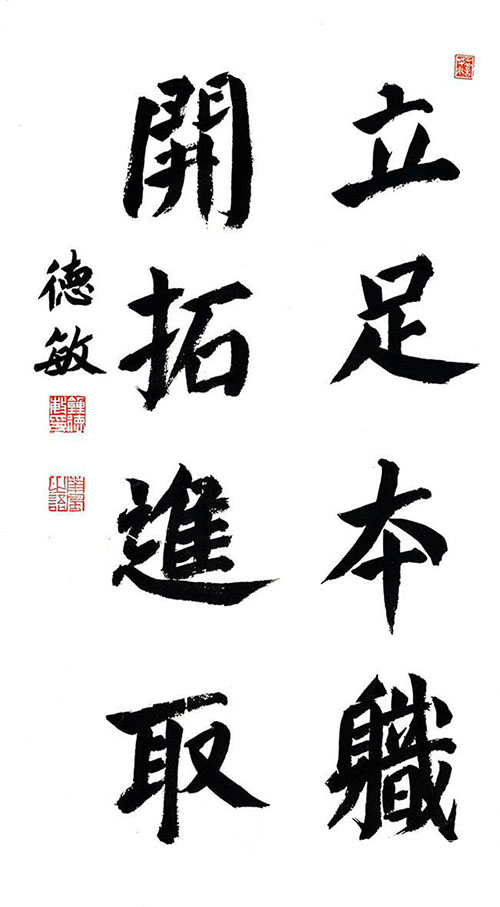 立足本職
開拓進取
德敏